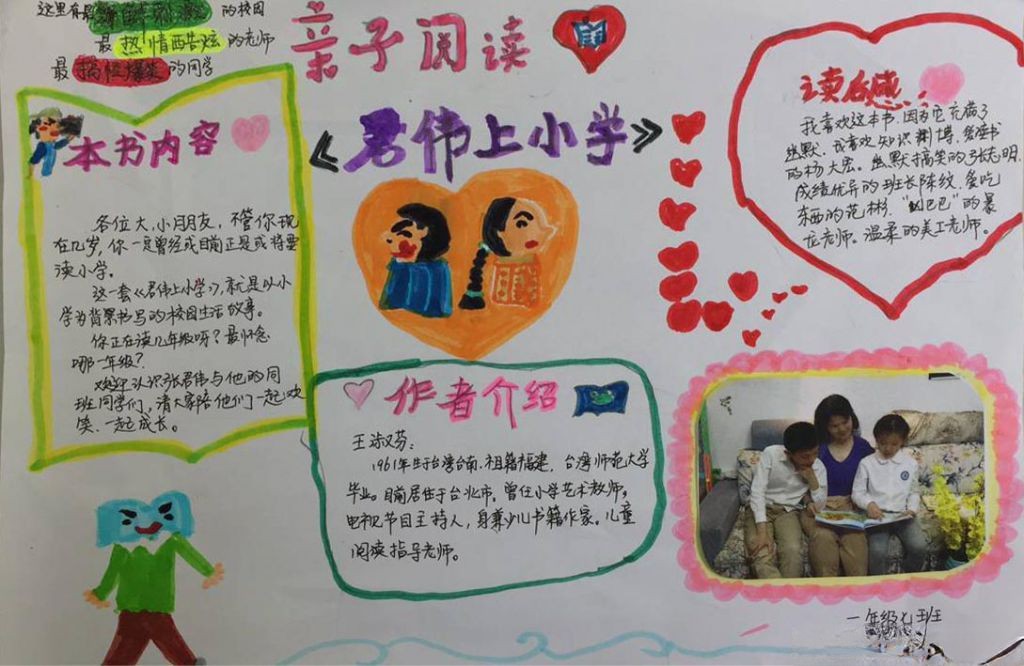 这里有最 的校园
最热情 的老师
最搞怪爆笑的同学
亲子阅读
《君伟上小学》
本书内容
各位大、小朋友，不管你现
在几岁，你一定曾经或目前正是或将要
读小学。
这一套《君伟上小学》，就是以小
学为背景书写的校园生活故事。
你正在读几年级呀？最怀念
哪一年级？
欢迎认识张君伟与他的同
班同学们，请大家陪他们一起欢
笑、一起成长。
作者介绍
王淑芬：
1961年生于台湾台南，祖籍福建，台湾师范大学
毕业。目前居住于台北市，曾任小学艺术教师，
电视节目主持人，身兼少儿书籍作家。儿童
阅读指导老师。
读后感
我喜欢这本书，因为它充满了
幽默，我喜欢知识渊博、爱读书
的杨大宏。幽默搞笑的张志明，
成绩优异的班长陈纹，爱吃
东西的范彬，“凶巴巴”的暴
龙老师。温柔的美工老师。
一年级七班